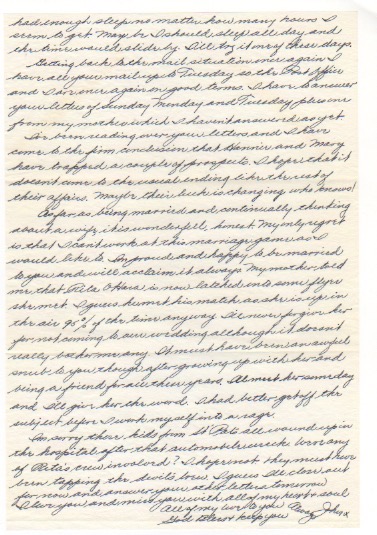 had enough sleep no matter how many hours I
seem to get. May be I should sleep all day and
the time would slide by. I'll try it one of these days.
Getting back to the mail situation once again I
have all your mail up to Tuesday so the Post Office
and I are once again on good terms. I have to answer
your letters of Sunday Monday and Tuesday plus one
from my mother which I haven't answered as yet
I've been reading over your letters and I have
come to the firm conclusion that and Mary
have trapped a couple of prospects. I hope that it
doesn't come to the usual ending like the rest of
their affairs. Maybe their luck is changing who knows!
As far as being married and continually thinking
about a wife it is wonderful, honest. My only regret
is that I can't work at this marriage game as I
would like to. I'm proud and happy to be married
to you and will acclaim it always. My mother told
me that Rita is now latched onto some flyer
she met. I guess he met his match as she is up in
the air 90% of the time anyway. I'll never forgive her
for not coming to our wedding although it doesn't
really bother me any. It must have been an awful
snub to you though after growing up with her and
being a friend for all these years. I'll meet her someday
and I'll give her the word. I had better get off the
subject before I work myself into a rage.
I'm sorry those kids from St Pats all wound up in
the hospital after that automobile wreck. Were any
of Rita's crew involved? I hope not. They must have
been tapping the devils brew. I guess I'll close out
for now and answer your other letters tomorrow
I love you and miss you with all of my heart & soul
All of my love to you
God bless & keep you John x